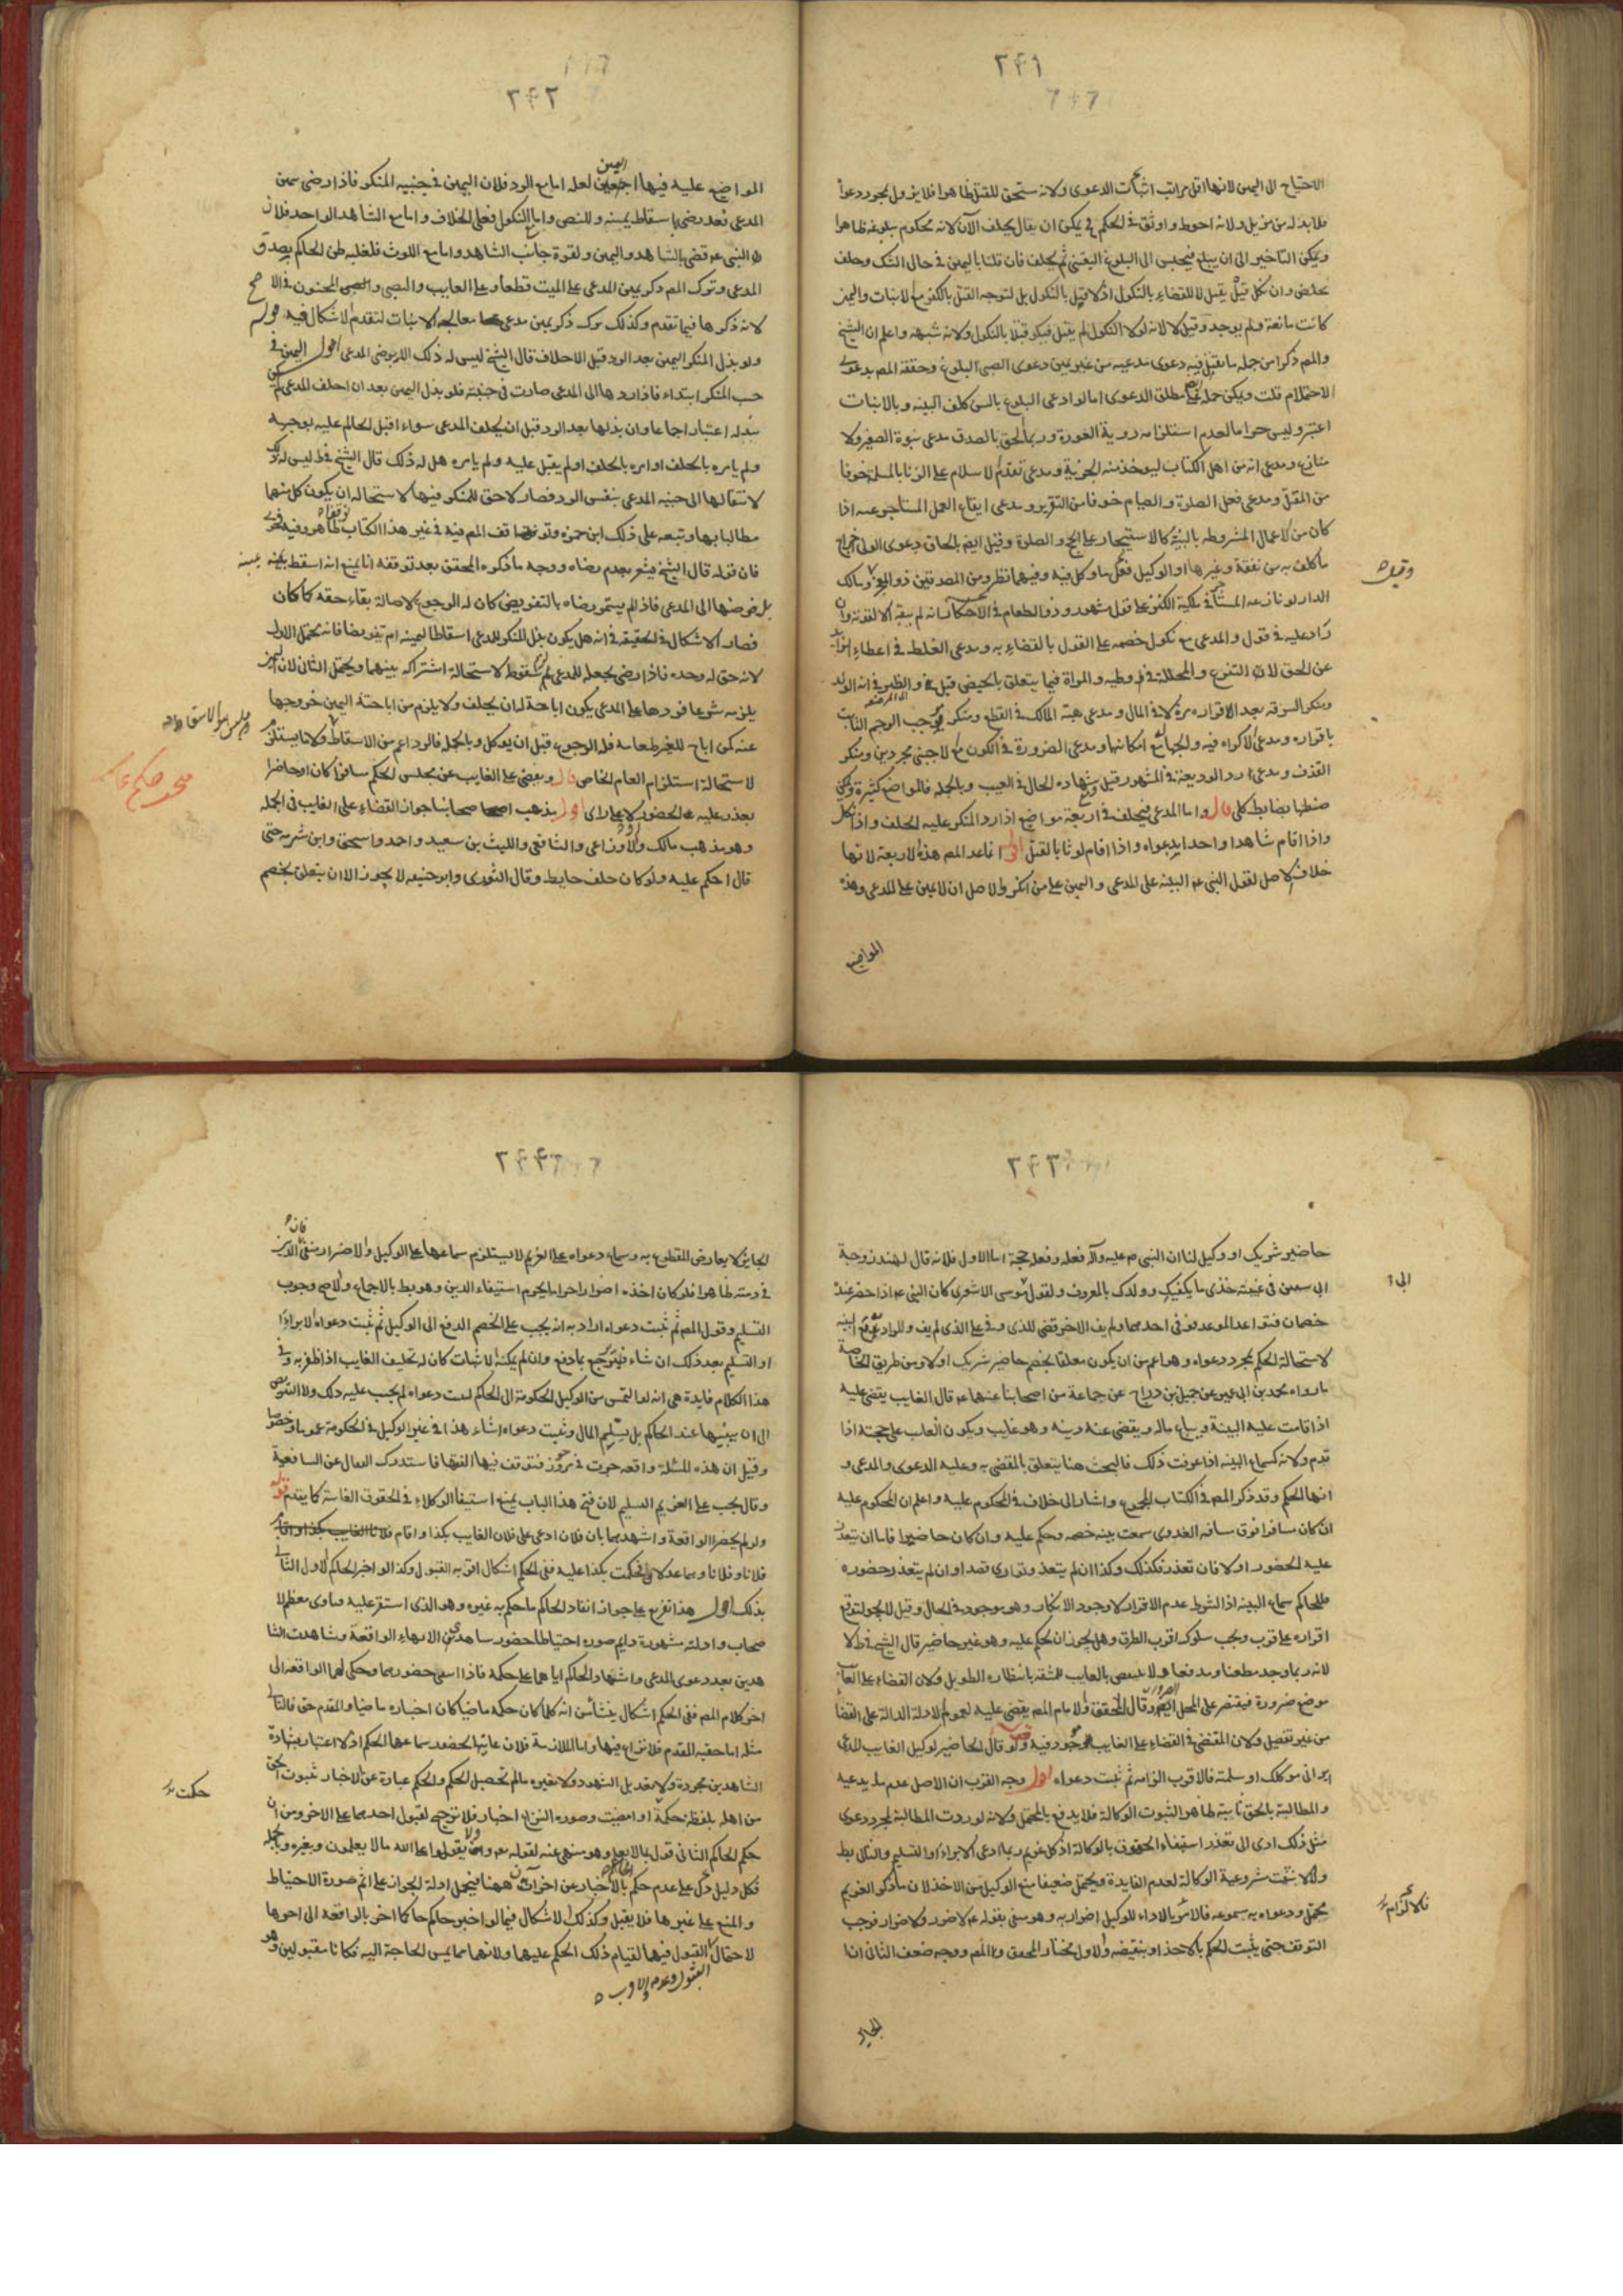 ٢٤١
الاحتياج الى اليمين لانها اقل مراتب اثبات الدعوى ولانه مستحق للقتل ظاهرا فلا يزول بمجرد دعواه
فلا بد له من مزيل ولانه احوط واوثق فى الحكم يمكن ان يقال يحلف الآن لانه محكوم ببلوغه ظاهرا
ويمكن التاخير الى ان يبلغ فيحبس الى البلوغ اليقينى ثم يحلف فان قلنا باليمين فى حال الشك وحلف
تخلص وان نكل قيل يقتل لا للقضاء بالنكول اذ لا قيل بالنكول بل لتوجه القتل بالكفر مع الانبات واليمين
كانت مانعة ولم يوجد وقيل لا لانه لولا النكول لم يقتل فيكون قتلا بالنكول ولانه شبهة واعلم ان الشيخ
والمصـ ذكرا من جملة ما يقبل فيه دعوى مدعيه من غير يمين دعوى الصبى البلوغ وحققه المصـ بدعوى
الاحتلام قلت ويمكن حمله على مطلق الدعوى اما لو ادعى البلوغ بالسن كلف البينه وبالانبات
اعتبر وليس حراما لعدم استلزامه روية العورة وربما الحق بالصدق مدعى بنوة الصغير ولا
منازع ومدعى انه من اهل الكتاب ليوخذ منه الجزية ومدعى تقدم الاسلام على الزنا بالمسلمة خوفا
من القتل ومدعى فعل الصلوة والصيام خوفا من التعزير ومدعى ايقاع العمل المستاجر عنه اذا
كان من الاعمال المشروطه بالنيّة كالاستيجار على الحج والصلوة وقيل ايضا بالحاق دعوى الولى اخراج
ما كلف به من نفقة وغيرها او الوكيل فعل ما وكل فيه وفيهما نظر ومن المصدقين ذو اليد ومالك
وقيل
الدار لو نازعه المستاجر فى ملكية الكنز على قول مشهور وذو الطعام فى الاحتكار انه لم يبقه الا لقوته وان
زاد عليه فى قول والمدعى مع نكول خصمه على القول بالقضاء به ومدعى الغلط فى اعطاء الزايد
عن الحق لا التبرع والمحللة فى وطيه والمراة فيما يتعلق بالحيض قيل وفى الظير فى انه الولد
ومنكر السرقه بعد الاقرار مرة لا فى المال ومدعى هبة المالك فى القطع ومنكر موجب الرجم الثابت
باقراره ومدعى الاكراه فيه والجهالة مع امكانها ومدعى الضرورة فى الكون مع الاجنبى مجردين ومنكر
القذف ومدعى رد الوديعة فى المشهور قيل وشهادة الحال فى العيب وبالجملة فالمواضع كثيرة ويمكن
ضبطها بضابط كلى قال واما المدعى فيحلف فى اربعة مواضع اذا رد المنكر عليه الحلف واذا نكل
واذا اقام شاهدا واحدا بدعواه واذا اقام لوثا بالقتل اقول انما عد المصـ هذه الاربعة لانها
خلاف الاصل لقول النبى عم البينة على المدعى واليمين على من انكر والاصل ان لا يمين على المدعى وهذه
المواضع
٢٤٢
المواضع عليه فيها اجمعين اليمين لعله اما مع الرد فلان اليمين فى جنبيه المنكر فاذا رضى بيمين
المدعى فقد رضى باسقاط يمينه وللنص واما النكول فعلى الخلاف واما مع الشاهد الواحد فلان
النبى عم قضى بالشاهد واليمين ولقوة جانب الشاهد واما مع اللوث فلغلبه ظن الحاكم بصدق
المدعى وترك المصـ ذكر يمين المدعى على الميت قطعا وعلى الغايب والصبى والمجنون فى الاصح
لانه ذكرها فيما تقدم وكذلك ترك ذكر يمين مدعى معالجة الانبات لتقدم الاشكال فيه قوله
ولو بذل المنكر اليمين بعد الرد قبل الاحلاف قال الشيخ ليس له ذلك الا برضى المدعى اقول اليمين فى
جنب المنكر ابتداء فاذا ردها الى المدعى صارت فى جنبته فلو بذل اليمين بعد ان احلف المدعى لم يكن
لبذله اعتبار اجماعا وان بذلها بعد الرد قبل ان يحلف المدعى سواء اقبل الحاكم عليه بوجهه
ولم يامره بالحلف او امره بالحلف او لم يقبل عليه ولم يامره هل له ذلك قال الشيخ فى ط ليس له ذلك
لانتقالها الى جنبه المدعى بنفس الرد فصار لا حق للمنكر فيها لاستحالة ان يكون كل منهما
مطالبا بها وتبعه على ذلك ابن حمزه وتوقف المصـ فيه فى غير هذا الكتاب ظاهر وفيه
فان قوله قال الشيخ يشعر بعدم رضاه ووجه ما ذكره المحقق بعد توقفه انا نمنع انه اسقط يمينه
بل فوضها الى المدعى فاذا لم يستمر رضاه بالتفويض كان له الرجوع لاصالة بقاء حقه كما كان
فصار الاشكال فى الحقيقة فى انه هل يكون بذل المنكر للمدعى اسقاطا ليمينه ام تفويضا فانه يحتمل الاول
لانه حق له وحده فاذا رضى بجعله للمدعى لزم سقوطه لاستحالة اشتراكه بينهما ويحتمل الثانى لان اليمين
يلزمه شرعا فردها على المدعى يكون اباحة لان يحلف ولا يلزم من اباحته اليمين خروجها
عنه كمن اباح للغير طعامه فله الرجوع قبل ان يوكل وبالجملة فالرد اعم من الاسقاط ولا يستلزمه
لاستحالة استلزام العام الخاص قال ويقضى على الغايب عن مجلس الحكم سافرا كان او حاضرا
تعذر عليه الحضور اولا على راى اقول مذهب اصحابنا جواز القضاء على الغايب فى الجملة
وهو مذهب مالك والاوزاعى والشافعى والليث بن سعيد واحمد واسحق وابن شبرمه حتى
قال احكم عليه ولو كان خلف حايط وقال الثورى وابو حنيفه لا يجوز الا ان يتعلق بخصم
٢٤٣
حاضر شريك او وكيل لنا ان النبى صم عليه وآله فعله وفعله حجة اما الاول فلانه قال لهند زوجة
ابى سفين فى غيبته خذى ما يكفيك وولدك بالمعروف ولقول ابو موسى الاشعرى كان النبى عم اذا حضر عنده
خصمان فتواعدا الموعد فوفى احدهما ولم يف الاخر قضى للذى وفى على الذى لم يف والمراد مع البينه
لاستحالة الحكم بمجرد دعواه وهو اعم من ان يكون معلقا بخصم حاضر شريك او لا ومن طريق الخاصة
ما رواه محمد بن ابى عمير عن جميل بن دراج عن جماعة من اصحابنا عنهما عم قال الغايب يقضى عليه
اذا قامت عليه البينة ويباع ماله ويقضى عنه دينه وهو غايب ويكون الغايب على حجته اذا
قدم ولانه كسماع البينه اذا عرفت ذلك فالبحث هنا يتعلق بالمقضى به وعليه الدعوى والمدعى و
انها الحكم وقد ذكر المصـ فى الكتاب الجميع واشار الى خلاف فى المحكوم عليه واعلم ان المحكوم عليه
ان كان مسافرا فوق مسافة العدوى سمعت بينة خصمه وحكم عليه وان كان حاضرا فاما ان يتعذر
عليه الحضور اولا فان تعذر فكذلك وكذا ان لم يتعذر وتوارى قصدا وان لم يتعذر حضوره
فللحاكم سماع البينه اذ الشرط عدم الاقرار لا وجود الانكار وهو موجود فى الحال وقيل لا يجوز لتوقع
اقراره على قرب ويجب سلوك اقرب الطرق وهل يجوز ان يحكم عليه وهو غير حاضر قال الشيخ فى ط لا
لانه ربما وجد مطعنا ومدفعا ولا ينقض بالغايب للمشقة بانتظاره الطويل ولان القضاء على الغايب
موضع ضرورة فيقتصر على المحل الضرورى وقال المحقق والامام المصـ يقضى عليه لعموم الادلة الدالة على القضا
من غير تفصيل ولان المقتضى فى القضاء على الغايب موجود فيه قوله ولو قال الحاضر لوكيل الغايب للدين
ابرانى موكلك او سلمته فالاقرب الزامه ثم تثبت دعواه اقول وجه القرب ان الاصل عدم ما يدعيه
والمطالبة بالحق ثابتة ظاهرا لثبوت الوكالة فلا يدفع بالمحتمل ولانه لو ردت المطالبة بمجرد دعوى
مثل ذلك ادى الى تعذر استيفاء الحقوق بالوكالة اذ كل غريم ربما ادعى الابراء او التسليم والتالى بط
والا لا تثبت شرعية الوكالة لعدم الفايدة ويحتمل ضعيفا منع الوكيل من الاخذ لان ما ذكر الغريم
محتمل ودعواه به مسموعه فالامر بالاداء للوكيل اضرار به وهو منفى بقوله عم لا ضرر ولا ضرار فوجب
فالالزام
التوقف حتى يثبت الحكم بالاخذ او بنقيضه والاول مختار المحقق والمصـ ووجه ضعف الثانى ان
الجايز
٢٤٤
الجايز لا يعارض المقطوع به وسماع دعواه على الغريم لا يستلزم سماعها على الوكيل والاضرار منفى فان الدين
فى ذمته ظاهرا فلو كان اخذه اضرارا حراما لحرم استيفاء الدين وهو بط بالاجماع والاصح وجوب
التسليم وقول المصـ ثم تثبت دعواه اراد به انه يجب على الخصم الدفع الى الوكيل ثم تثبت دعواه الابراء
او التسليم بعد ذلك ان شاء فيرتجع بما دفع وان لم يمكنه الاثبات كان له تحليف الغايب اذا ظفر به وفى
هذا الكلام فايدة هى انه لو التمس من الوكيل الحكومة الى الحاكم ليثبت دعواه لم يجب عليه ذلك ولا التربص
الى ان يبينها عند الحاكم بل يسلم المال وتثبت دعواه انشاء هذا فى غير الوكيل فى الحكومة عموما او خصوصا
وقيل ان هذه المسئلة واقعة جرت فى مرو فتوقف فيها الفقها فاستدرك القفال عن الشافعية
وقال يجب على الغريم التسليم لان فتح هذا الباب يمنع استيفا الوكلاء فى الحقوق الغايبة كما تقدم قوله
ولو لم يحضرا الواقعة واشهدهما بان فلان ادعى على فلان الغايب بكذا واقام
فلانا وفلانا وهما عدلان فحكمت بكذا عليه ففى الحكم اشكال اقربه القبول وكذا لو اخبر الحاكم الاول الثانى
بذلك اقول هذا تفريع على جواز انفاذ الحاكم ما حكم به غيره وهو الذى استقر عليه فتاوى معظم الا
صحاب وادلته مشهورة واتم صوره احتياطا حضور شاهدى الانهاء الواقعة ومشاهدت الشا
هدين بعد دعوى المدعى واشهاد الحاكم اياهما على حكمه فاذا انتفى حضورهما وحكى لهما الواقعه الى
اخر كلام المصـ ففى الحكم اشكال ينشأ من انه كلما كان حكمه ماضيا كان اخباره ماضيا والمقدم حق فالتالى
مثله اما حقيه المقدم فلا نزاع فيها واما الملازمة فلان غايتها لحضور سماعها الحكم اذ لا اعتبار بشهادة
الشاهدين مجردة ولا بتعديل الشهود ولا بغيره ما لم تحصيل الحكم والحكم عبارة عن الاخبار بثبوت الحق
من اهله بلفظة حكمت او امضيت وصورة النزاع اخبار فلا ترجيح لقبول احدهما على الاخر ومن ان
حكمت
حكم الحاكم الثانى قول بما لا يعلم وهو منهى عنه لقوله تعـ وان تقولوا على الله ما لا يعلمون وبغيره وبالجملة
فكل دليل دل على عدم حكم الحاكم بالاخبار عن اخر آت ههنا فيحمل ادلة الجواز على اتم صورة الاحتياط
والمنع على غيرها فلا يقبل وكذلك الاشكال فيما لو اخبر حاكم حاكما اخر بالواقعه الى اخرها
لاحتمال القبول فيها لقيام ذلك الحكم عليها ولانها مما يمس الحاجة اليه فكانا مقبولين وهو
القبول وعدمه والاقرب